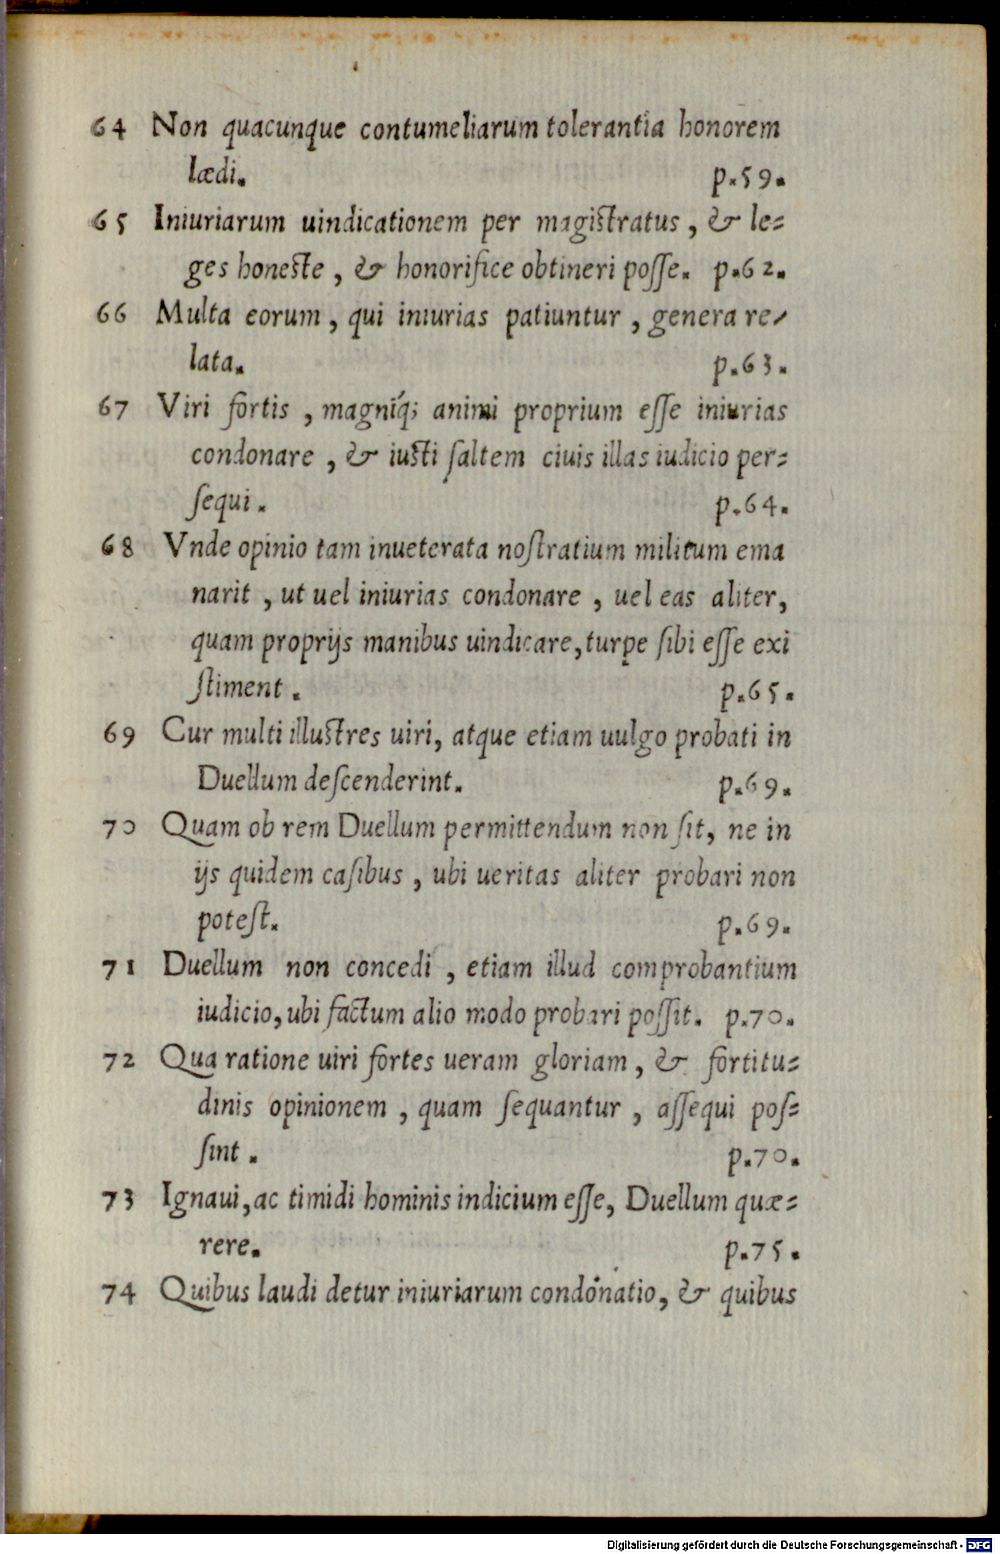 64 Non quacunque contumeliarum tolerantia honorem
lædi. p.59.
65 Iniuriarum uindicationem per magistratus, & le-
ges honeste, & honorifice obtineri posse. p.62.
66 Multa eorum, qui iniurias patiuntur, genera re-
lata. p.63.
67 Viri fortis, magniq́; animi proprium esse iniurias
condonare, & iusti saltem ciuis illas iudicio per-
sequi. p.64.
68 Vnde opinio tam inueterata nostratium militum ema
narit, ut uel iniurias condonare, uel eas aliter,
quam proprijs manibus uindicare, turpe sibi esse exi
stiment. p.65.
69 Cur multi illustres uiri, atque etiam uulgo probati in
Duellum descenderint. p.69.
70 Quam ob rem Duellum permittendum non sit, ne in
ijs quidem casibus, ubi ueritas aliter probari non
potest. p.69.
71 Duellum non concedi, etiam illud comprobantium
iudicio, ubi factum alio modo probari possit. p.70.
72 Qua ratione uiri fortes ueram gloriam, & fortitu-
dinis opinionem, quam sequantur, assequi pos-
sint. p.70.
73 Ignaui, ac timidi hominis indicium esse, Duellum quæ-
rere. p.75.
74 Quibus laudi detur iniuriarum condonatio, & quibus
Digitalisierung gefördert durch die Deutsche Forschungsgemeinschaft - DFG